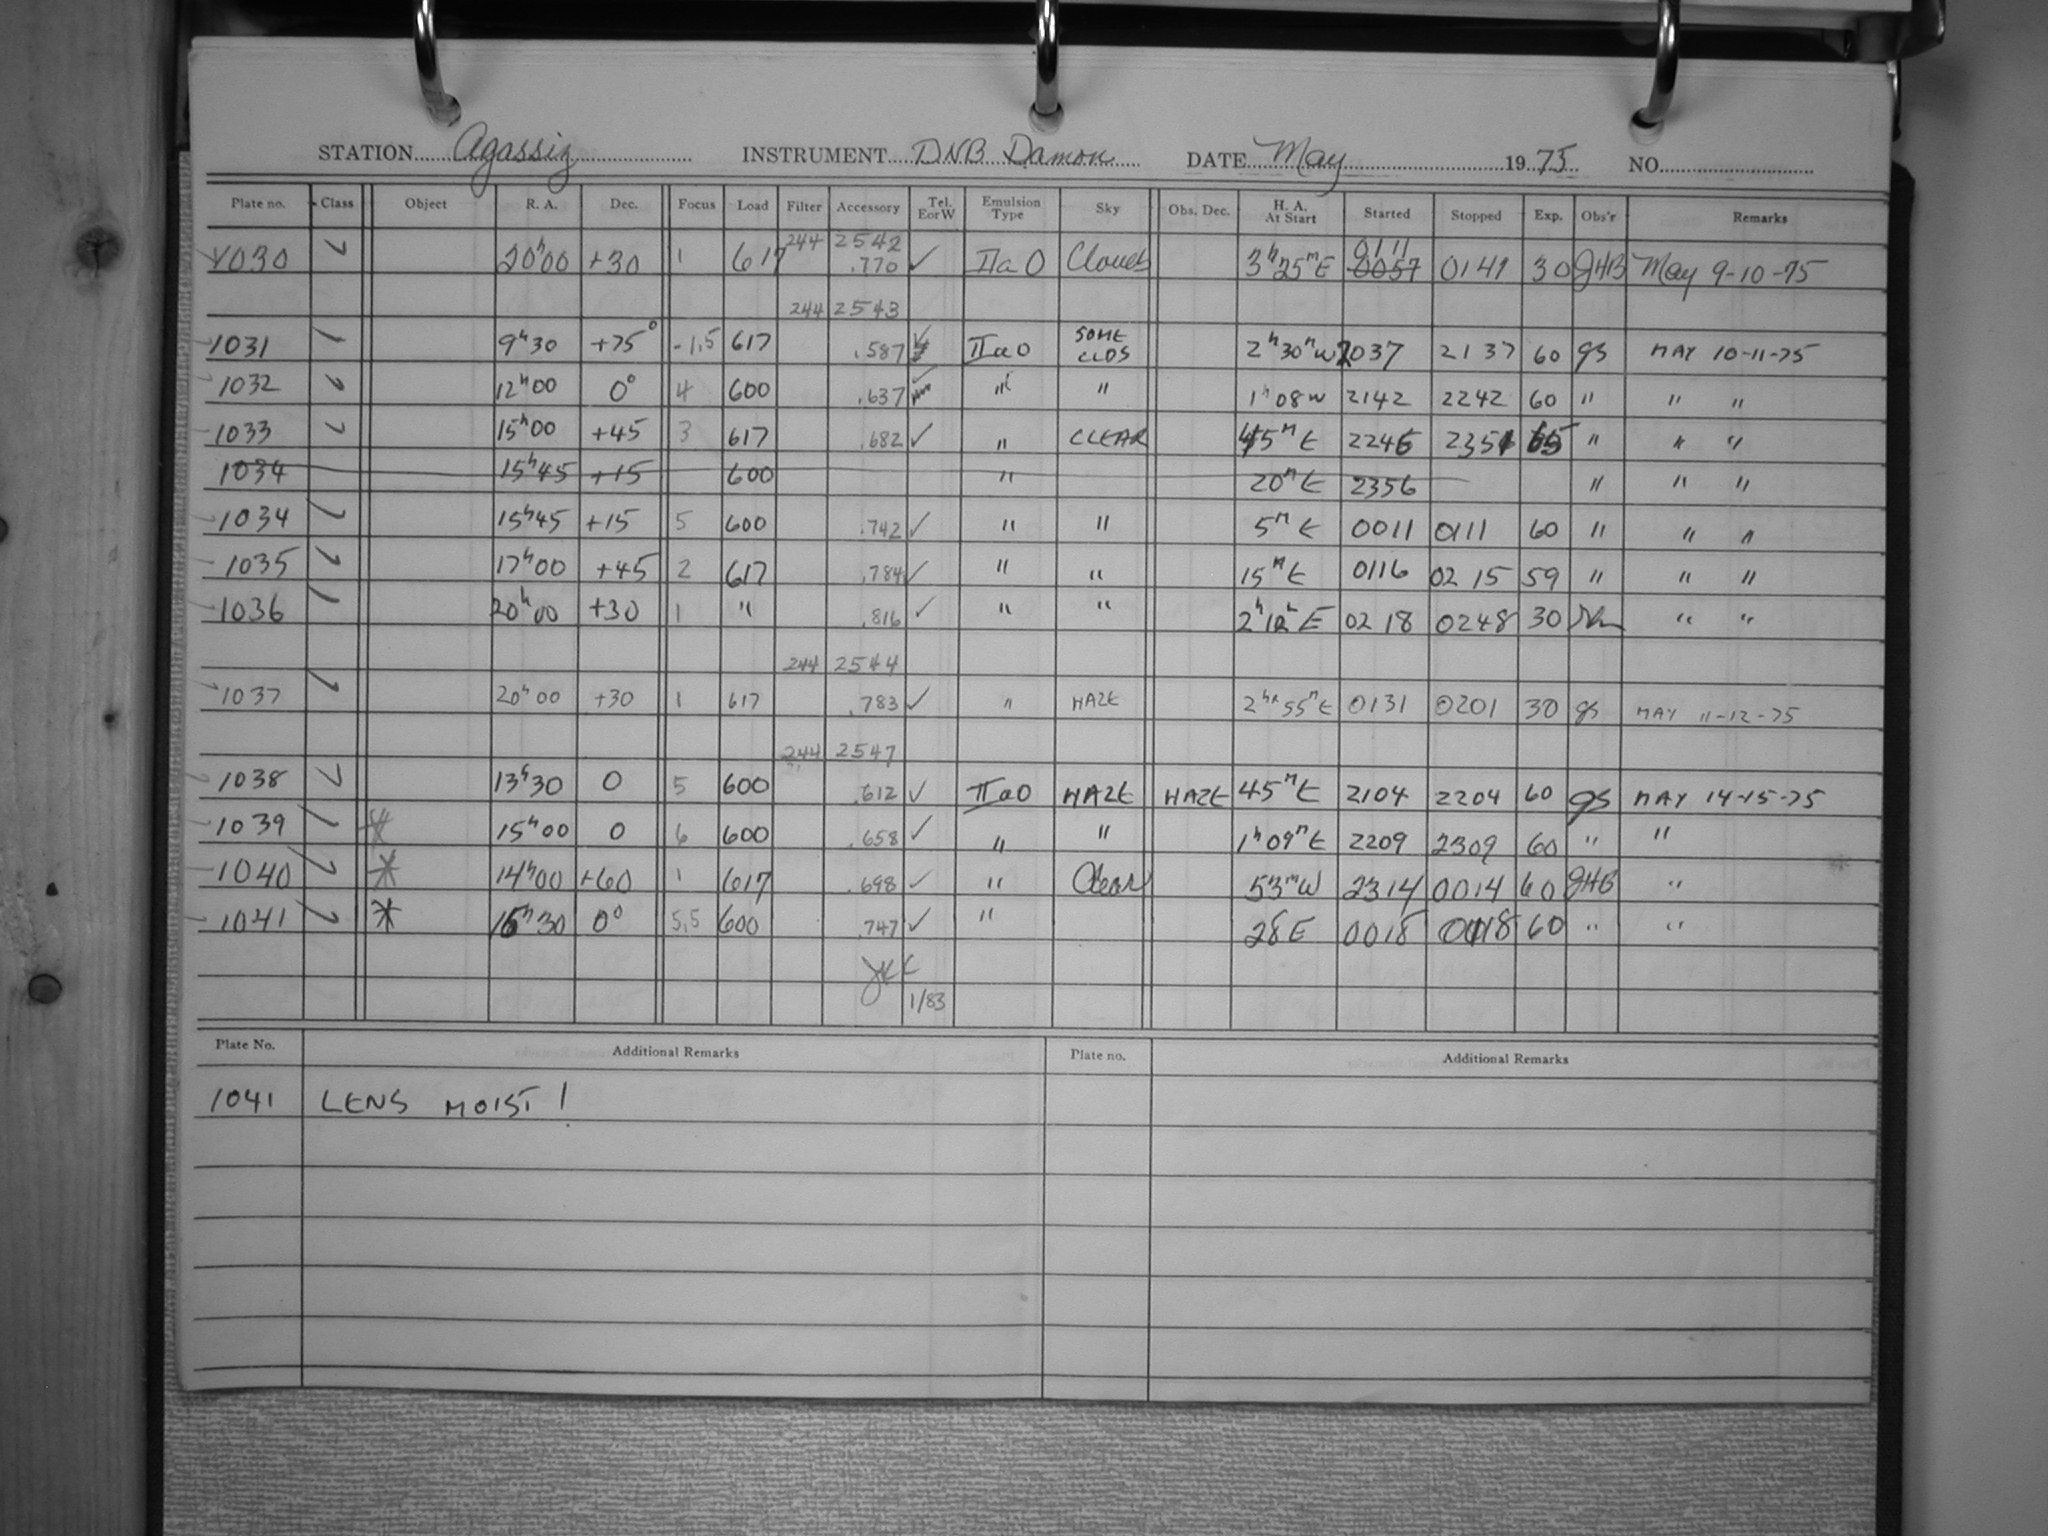 STATION Agassiz INSTRUMENT DNB Damon DATE May 1975 NO.
Plate no. Class Object R. A. Dec. Focus Load Filter Accessory Tel. E or W Emulsion Type Sky Obs. Dec. H. A. At Start Started Stopped Exp. Obs'r Remarks
244 2542 0111
1030 ✓ 20h00 +30 1 617 .770 ✓ IIaO Clouds 3h25mE 0057 0141 30 JHB May 9-10-75
244 2543
1031 ✓ 9h30 +75° -1.5 617 .587 ✓ IIaO SOME CLDS 2h30mW 2037 2137 60 gs MAY 10-11-75
1032 ✓ 12h00 0° 4 600 .637 ✓ " " 1h08W 2142 2242 60 " " "
1033 ✓ 15h00 +45 3 617 .682 ✓ " CLEAR 45mE 2246 2351 65 " " "
1034 15h45 +15 600 " 20mE 2356 " " "
1034 ✓ 15h45 +15 5 600 .742 ✓ " " 5mE 0011 0111 60 " " "
1035 ✓ 17h00 +45 2 617 .784 ✓ " " 15mE 0116 0215 59 " " "
1036 ✓ 20h00 +30 1 " .816 ✓ " " 2h12E 0218 0248 30 " "
244 2544
1037 ✓ 20h00 +30 1 617 .783 ✓ " HAZE 2hr55mE 0131 0201 30 gs MAY 11-12-75
244 2547
1038 ✓ 13h30 0 5 600 .612 ✓ IIaO HAZE HAZE 45mE 2104 2204 60 gs MAY 14-15-75
1039 ✓ * 15h00 0 6 600 .658 ✓ " " 1h09mE 2209 2309 60 " "
1040 ✓ * 14h00 +60 1 617 .698 ✓ " Clear 53mW 2314 0014 60 JHB "
1041 ✓ * 16h30 0° 5.5 600 .747 ✓ " 28E 0018 0118 60 " "
1/83
Plate No. Additional Remarks Plate no. Additional Remarks
1041 LENS MOIST!